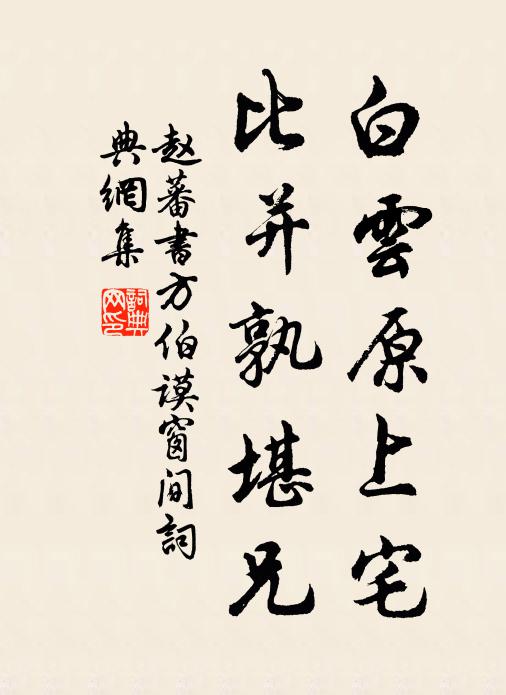 白雲原上宅
比并孰堪兄
赵蕃書方伯謨窗间詞
典網集
詞典网印